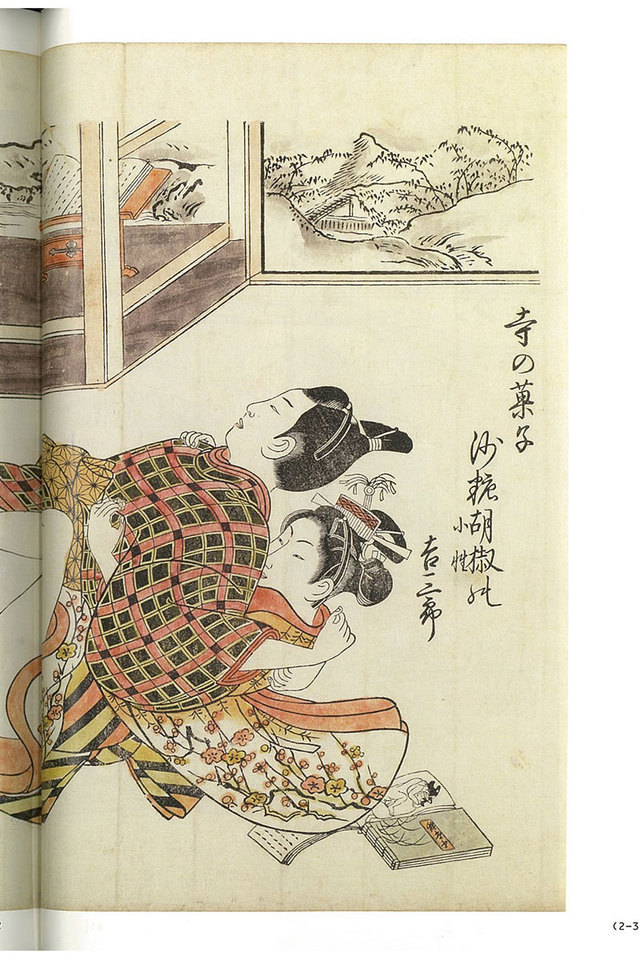 寺の菓子
沙糖胡椒の
小性
吉三郎
(2-3